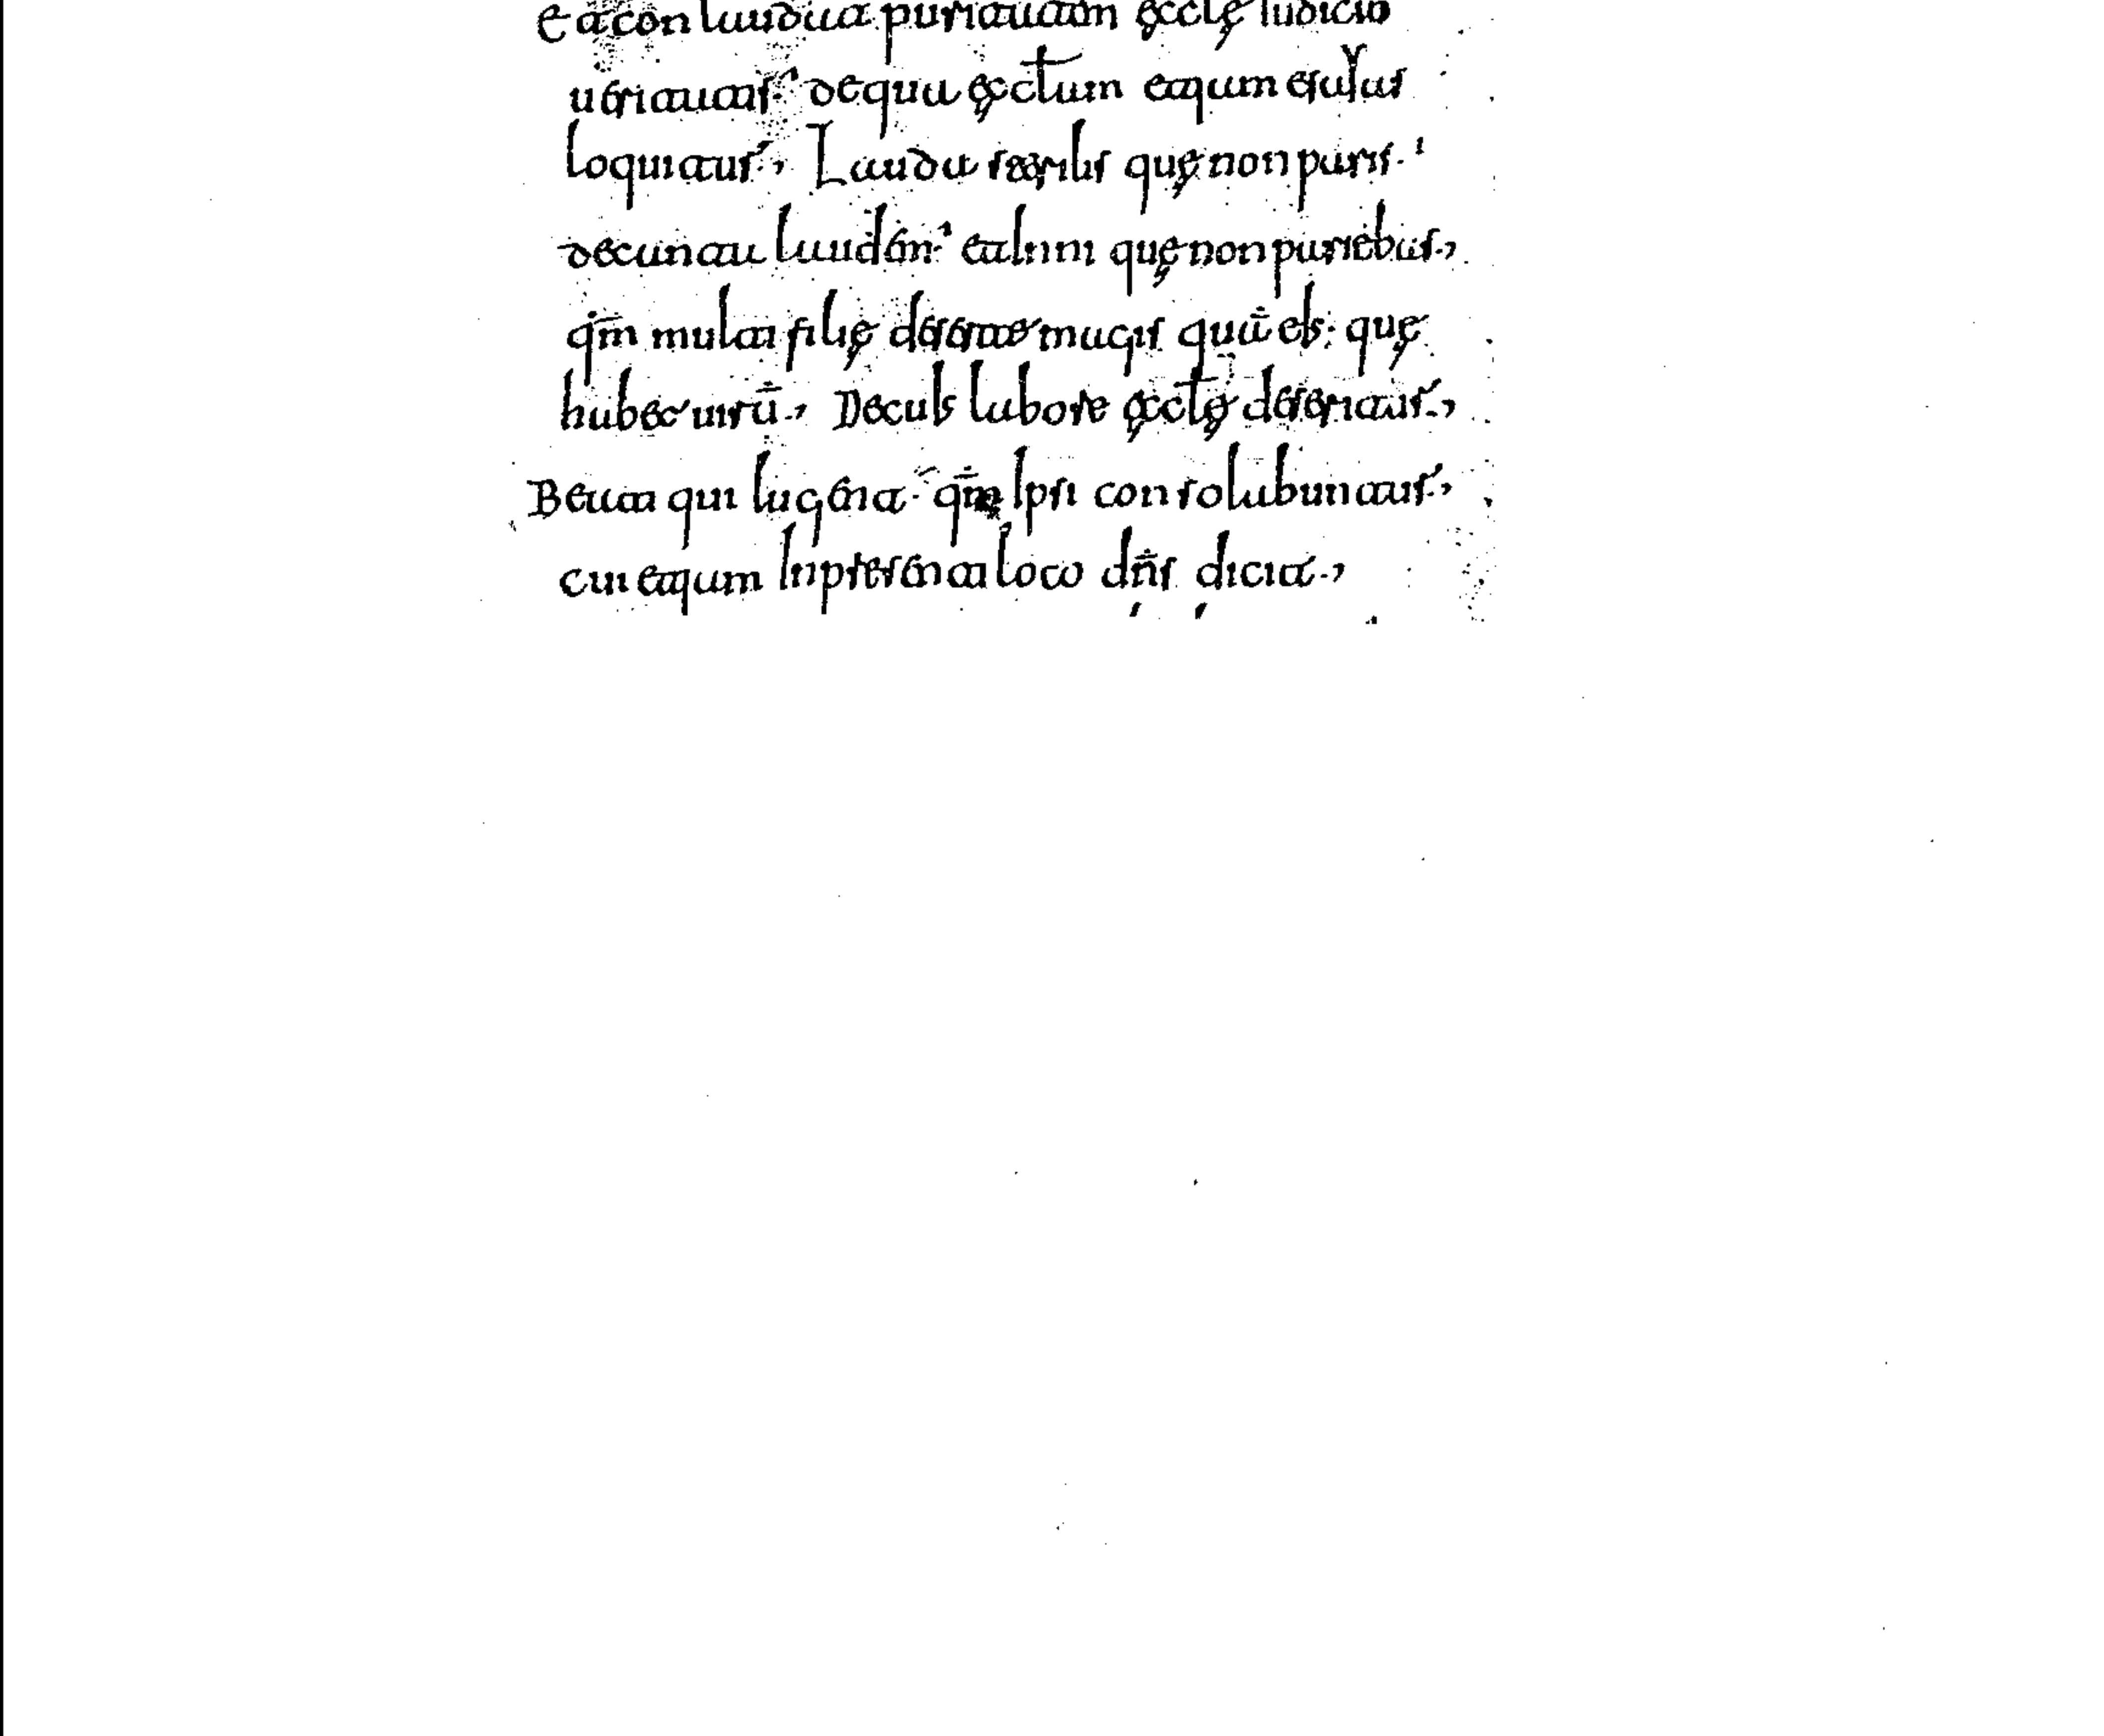 Et conlaudat puritatem ęcclę iudicio
ueritatis. de qua ęcclam etiam esayas
loquitur. Lauda sterilis quę non paris.
decanta laudem. et inni quę non pariebas.
qm̄ multi filię desertę magis quā eius: quę
habet uirū. De cuius labore ęcclę deseritur.
Beati qui lugent. qm̄ ipsi consolabuntur.
cui etiam in presenti loco dn̄s dicit.